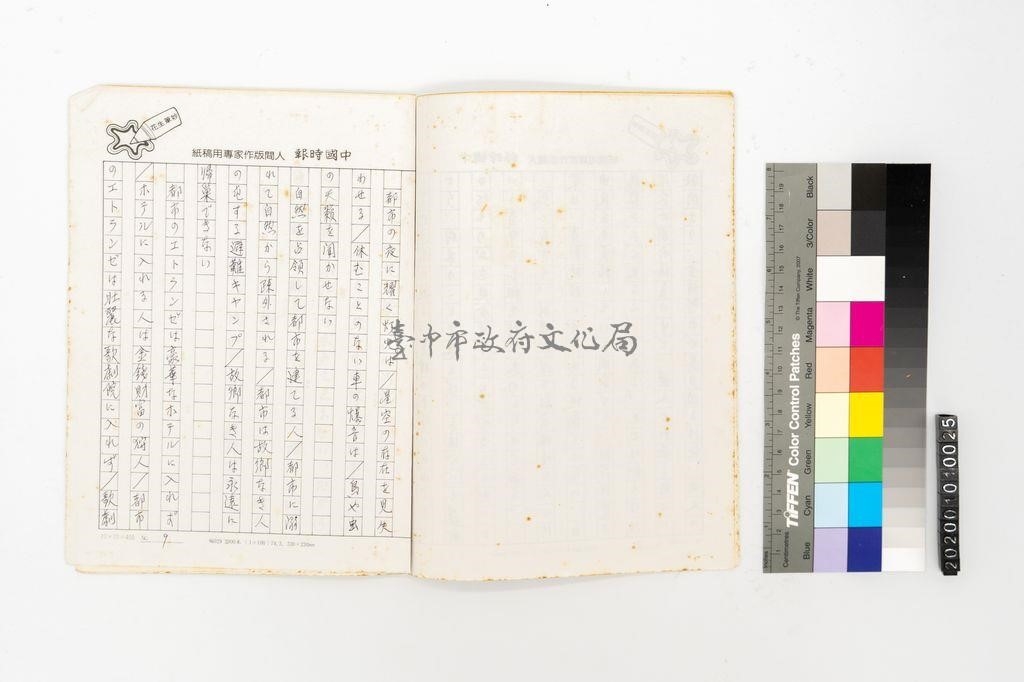 花生筆抄
中國時報 人間版作家專用稿紙
都市の夜に耀く灯は/星空の存在を見失
わせる/休むことのない車の爆音は/鳥や虫
の天籟を聞かせない
自然を占領して都市を建てる人/都市に溺
れて自然から除外される/都市は故郷なき人
の屯する避難キャンプ/故郷なき人は永遠に
帰巣できない
都市のエトランゼは豪華なホテルに入れず
/ホテルに入れる人は金銭財富の狩人/都市
のエトランゼは壮麗な歌劇院に入れず/歌劇
9
臺中市政府文化局
TIFFEN Color Control Patches
© The Tiffen Company, 2007
Centimetres
Inches
Blue
Cyan
Green
Yellow
Red
Magenta
White
3/Color
Black
20200101 0025